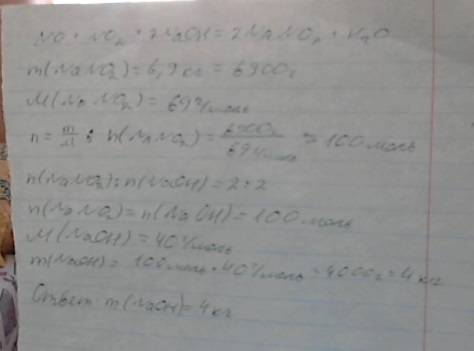 NO + NO₂ + 2NaOH = 2NaNO₂ + H₂O
m(NaNO₂) = 6,9 кг = 6900 г
M(NaNO₂) = 69 г/моль
n = m/M ; n(NaNO₂) = 6900г/69 г/моль = 100 моль
n(NaNO₂) : n(NaOH) = 2 : 2
n(NaNO₂) = n(NaOH) = 100 моль
M(NaOH) = 40 г/моль
m(NaOH) = 100 моль • 40 г/моль = 4000 г = 4 кг
Ответ: m(NaOH) = 4 кг